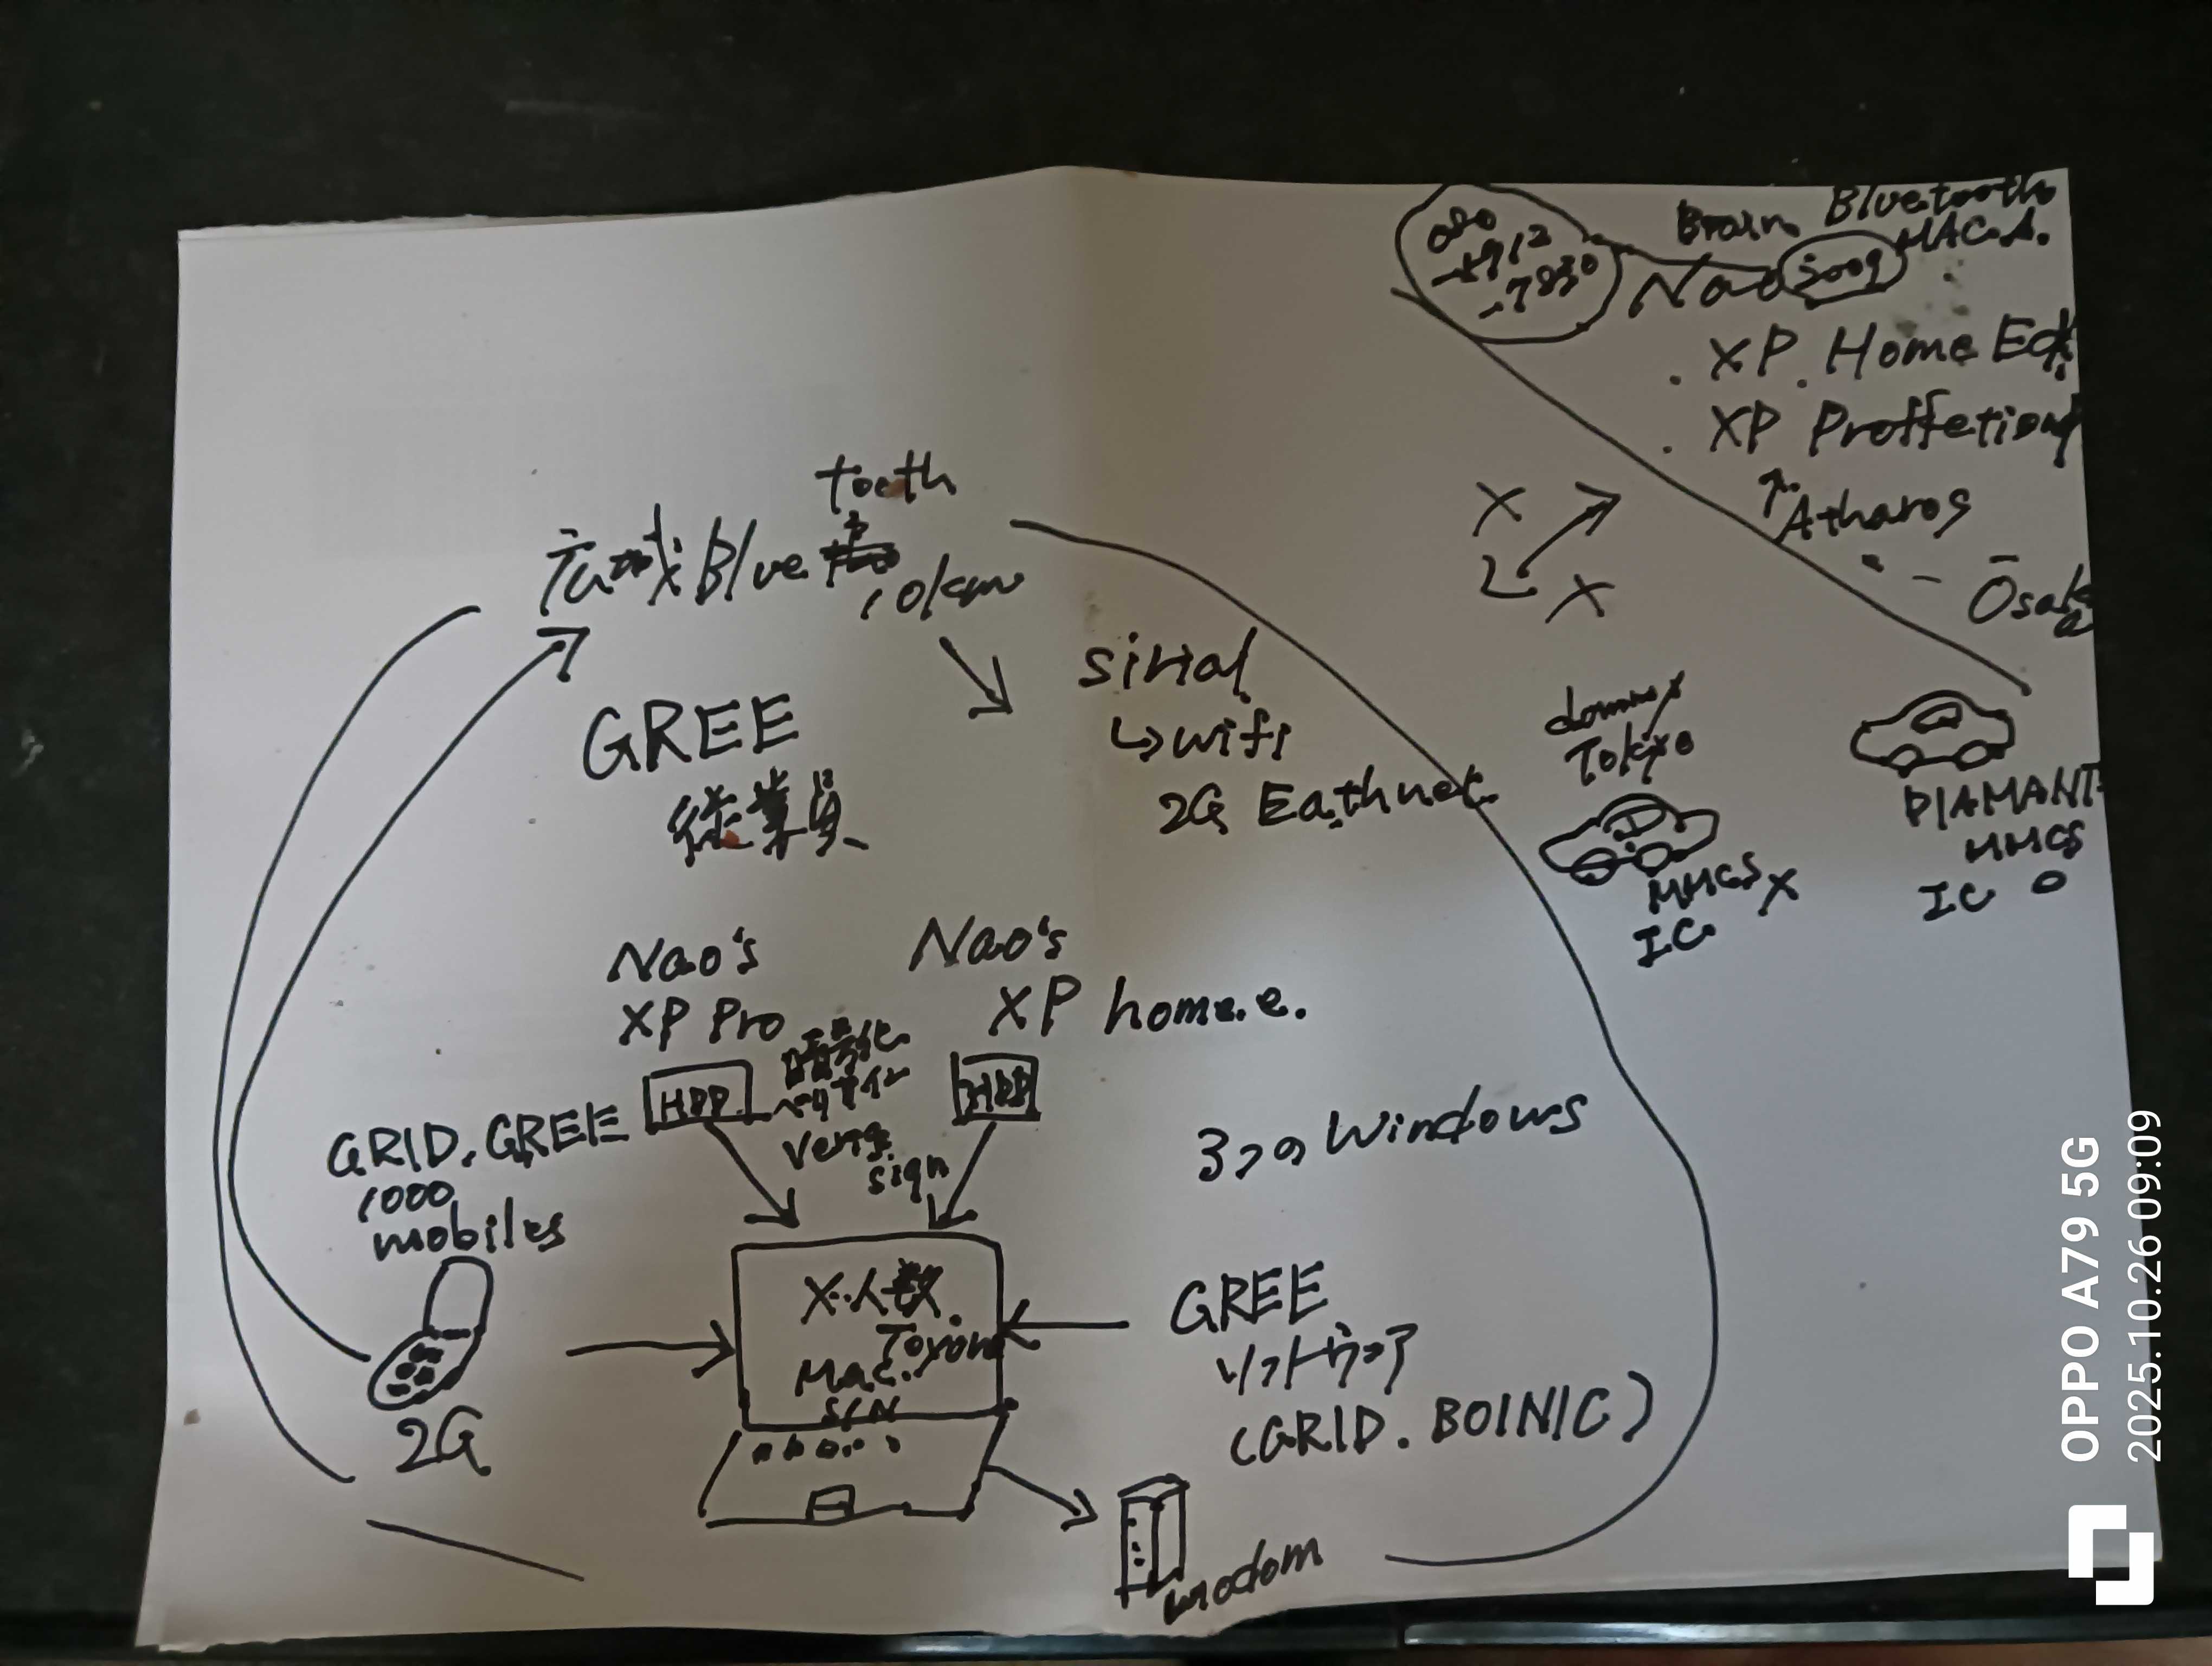 080
7830
Brain Bluetooth
MAC.A.
Nao 5009
・XP. Home Edt
・XP Proffetional
↑Atharos
Ōsaka
tooth
広域Blue
10km
X
X
sirial
↳wifi
2G Eathnet
GREE
従業員
Tokyo
MMCS X
IC
DIAMANT
MMCS
IC O
Nao's
XP Pro
Nao's
XP home.e.
暗号化
ベリサイン
Veri
sign
HDD
HDD
GRID.GREE
1000
mobiles
2G
3つのWindows
X.人数.
Mac.
S/N
GREE
ソフトウェア
(GRID.BOINIC)
modom
OPPO A79 5G
2025.10.26 09:09